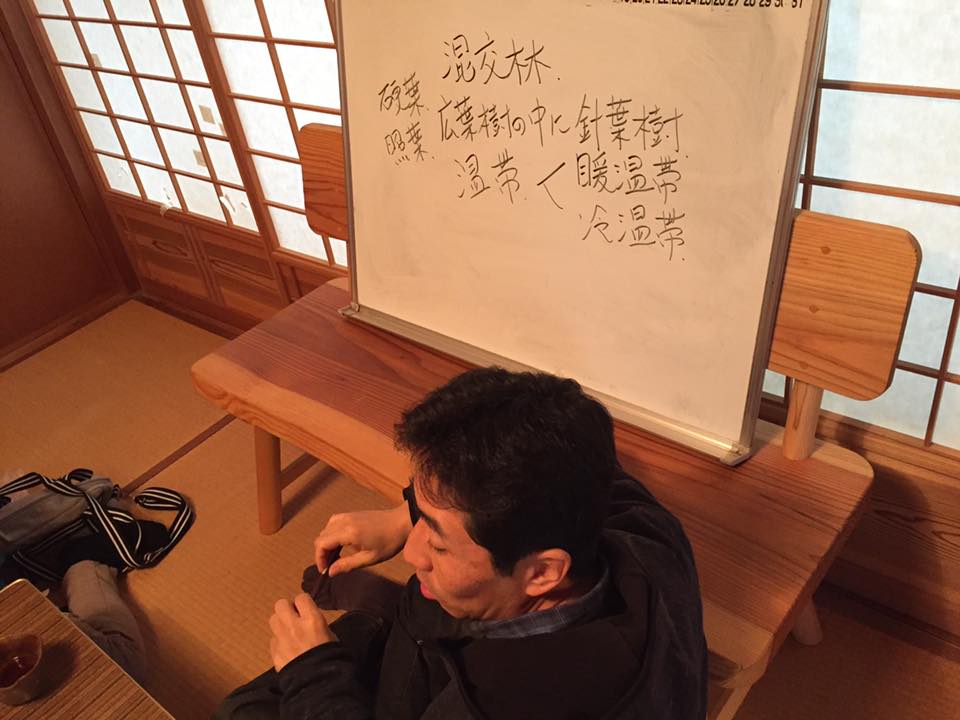 混交林.
硬葉. 広葉樹の中に 針葉樹.
照葉. 温帯. < 暖温帯
冷温帯.